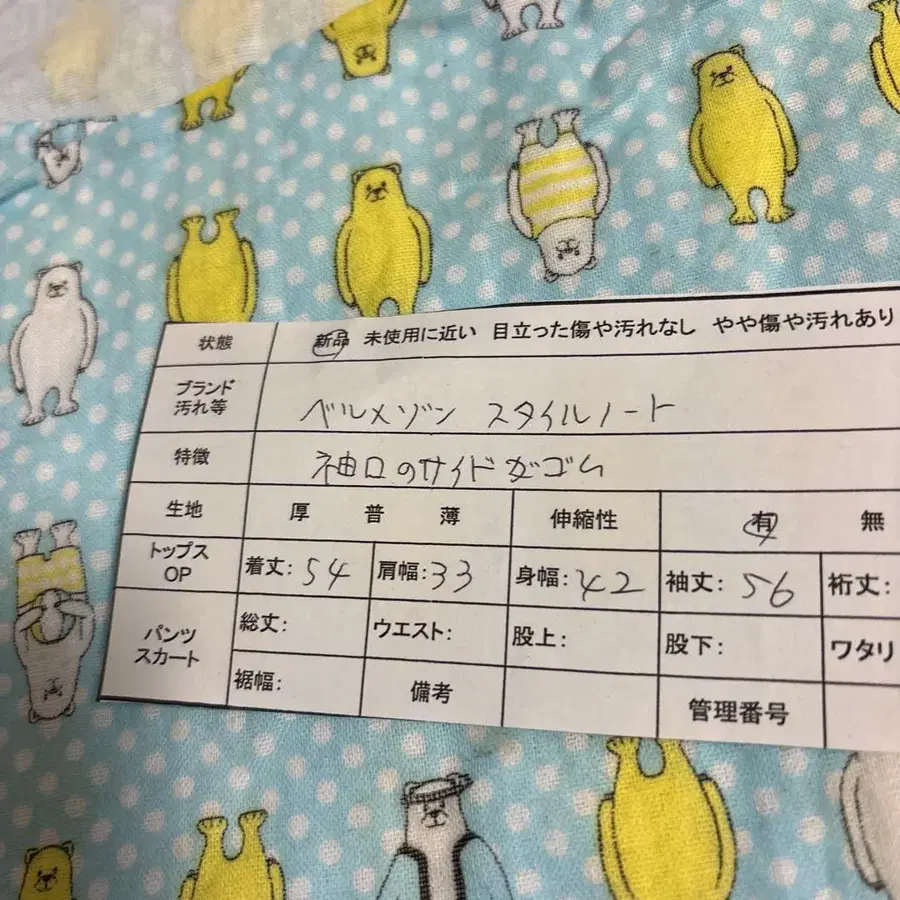 状態 新品 未使用に近い 目立った傷や汚れなし やや傷や汚れあり
ブランド
汚れ等
ベルメゾン スタイルノート
特徴 袖口のサイドがゴム
生地 厚 普 薄 伸縮性 有 無
トップス
OP
着丈: 54 肩幅: 33 身幅: 42 袖丈: 56 裄丈:
パンツ
スカート
総丈: ウエスト: 股上: 股下: ワタリ
裾幅: 備考 管理番号